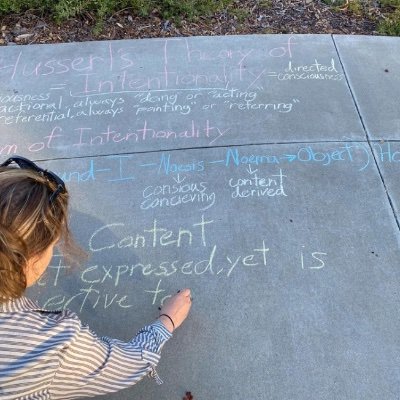 Husserl's Theory of
Intentionality = directed
consciousness
= 
actional, always "doing" or "acting"
referential, always "pointing" or "referring"
of Intentionality
I - Noesis - Noema → Object)
consious content
concieving derived
Content
expressed, yet is